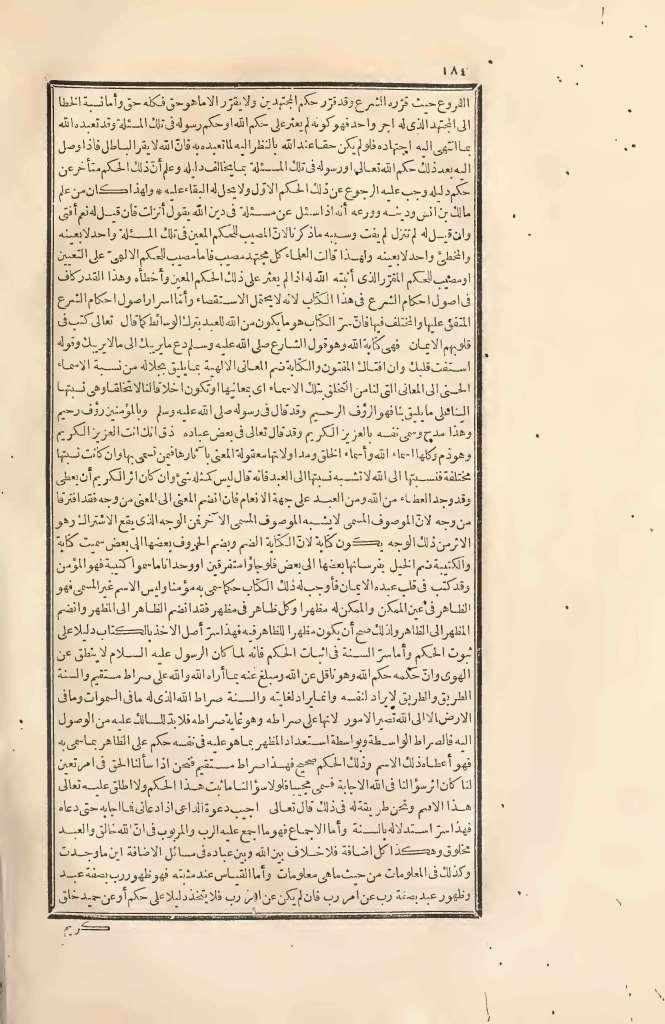 ١٨٤
الفروع حيث قرره الشرع وقد قرر حكم المجتهدين ولا يقرر الا ما هو حق فكله حق وأما نسبة الخطا
الى المجتهد الذى له اجر واحد فهو كونه لم يعثر على حكم الله أو حكم رسوله فى تلك المسئلة وقد تعبده الله
بما انتهى اليه اجتهاده فلو لم يكن حقا عند الله بالنظر اليه لما تعبده به فان الله لا يقر الباطل فاذا وصل
اليه بعد ذلك حكم الله تعالى او رسوله فى تلك المسئلة بما يخالف دليله وعلم أن ذلك الحكم متأخر عن
حكم دليله وجب عليه الرجوع عن ذلك الحكم الاول ولا يحل له البقاء عليه * ولهذا كان من علم
مالك بن انس ودينه وورعه أنه اذا سئل عن مسئلة فى دين الله يقول أنزلت فان قيل له نعم أفتى
وان قيل له لم تنزل لم يفت وسببه ما ذكرنا لان المصيب للحكم المعين فى تلك المسئلة واحد لا بعينه
والمخطئ واحد لا بعينه ولهذا قالت العلماء كل مجتهد مصيب فاما مصيب للحكم الالهى على التعيين
او مصيب للحكم المقرر الذى أثبته الله له اذا لم يعثر على ذلك الحكم المعين وأخطأه وهذا القدر كاف
فى اصول احكام الشرع فى هذا الكتاب لانه لا يحتمل الاستقصاء وأما اسرار اصول احكام الشرع
المتفق عليها والمختلف فيها فان سر الكتاب هو ما يكون من الله للعبد بترك الوسائط كما قال تعالى كتب فى
قلوبهم الايمان فهى كتابة الله وهو قول الشارع صلى الله عليه وسلم دع ما يريبك الى ما لا يريبك وقوله
استفت قلبك وان افتاك المفتون والكتابة ضم المعانى الالهية بما يليق بجلاله من نسبة الاسماء
الحسنى الى المعانى التى لنا من التخلق بتلك الاسماء اى بمعانيها وتكون اخلاقا لنا لا تخلقا وهى نسبتها
الينا على ما يليق بنا فهو الرؤف الرحيم وقد قال فى رسوله صلى الله عليه وسلم وبالمؤمنين رؤف رحيم
وهذا مدح وسمى نفسه بالعزيز الكريم وقد قال تعالى فى بعض عباده ذق انك انت العزيز الكريم
وهو ذم وكلها اسماء الله وأسماء الخلق ومدلولاتها معقولة المعنى بآثارها فيمن تسمى بها وان كانت نسبتها
مختلفة فنسبتها الى الله لا تشبه نسبتها الى العبد فانه قال ليس كمثله شئ وان كان اثر الكريم أن يعطى
وقد وجد العطاء من الله ومن العبد على جهة الانعام فان انضم المعنى الى المعنى من وجه فقد افترقا
من وجه لان الموصوف المسمى لا يشبه الموصوف المسمى الآخر فمن الوجه الذى يقع الاشتراك وهو
الاثر من ذلك الوجه يكون كتابة لان الكتابة الضم وبضم الحروف بعضها الى بعض سميت كتابة
والكتيبة ضم الخيل بفرسانها بعضها الى بعض فلو جاؤا متفرقين او وحدانا ما سموا كتيبة فهو المؤمن
وقد كتب فى قلب عبده الايمان فأوجب له ذلك الكتاب حكما سمى به مؤمنا وليس الاسم غير المسمى فهو
الظاهر فى عين الممكن والممكن له مظهرا وكل ظاهر فى مظهر فقد انضم الظاهر الى المظهر وانضم
المظهر الى الظاهر ولذلك صح أن يكون مظهرا للظاهر فيه فهذا سر أصل الاخذ بالكتاب دليلا على
ثبوت الحكم وأما سر السنة فى اثبات الحكم فانه لما كان الرسول عليه السلام لا ينطق عن
الهوى وان حكمه حكم الله وهو ناقل عن الله ومبلغ عنه بما أراه الله والله على صراط مستقيم والسنة
الطريق والطريق لا يراد لنفسه وانما يراد لغايته والسنة صراط الله الذى له ما فى السموات وما فى
الارض الا الى الله تصير الامور لانها على صراطه وهو غاية صراطه فلا بد للسالك عليه من الوصول
اليه فالصراط الواسطة وبواسطة استعداد المظهر بما هو عليه فى نفسه حكم على الظاهر بما سمى به
فهو أعطاه ذلك الاسم وذلك الحكم صحيح فهذا صراط مستقيم فنحن اذا سألنا الحق فى امر تعين
لنا كان اثر سؤالنا فى الله الاجابة فسمى مجيبا فلولا سؤالنا ما ثبت هذا الحكم ولا اطلق عليه تعالى
هذا الاسم ونحن طريقة له فى ذلك قال تعالى اجيب دعوة الداعى اذا دعانى فما اجابه حتى دعاه
فهذا سر استدلاله بالسنة وأما الاجماع فهو ما اجمع عليه الرب والمربوب فى ان الله خالق والعبد
مخلوق وهكذا كل اضافة فلا خلاف بين الله وبين عباده فى مسائل الاضافة اين ما وجدت
وكذلك فى المعلومات من حيث ما هى معلومات وأما القياس عند مثبته فهو ظهور رب بصفة عبد
وظهور عبد بصفة رب عن امر رب فان لم يكن عن امر رب فلا يتخذ دليلا على حكم أو عن حميد خلق
كريم